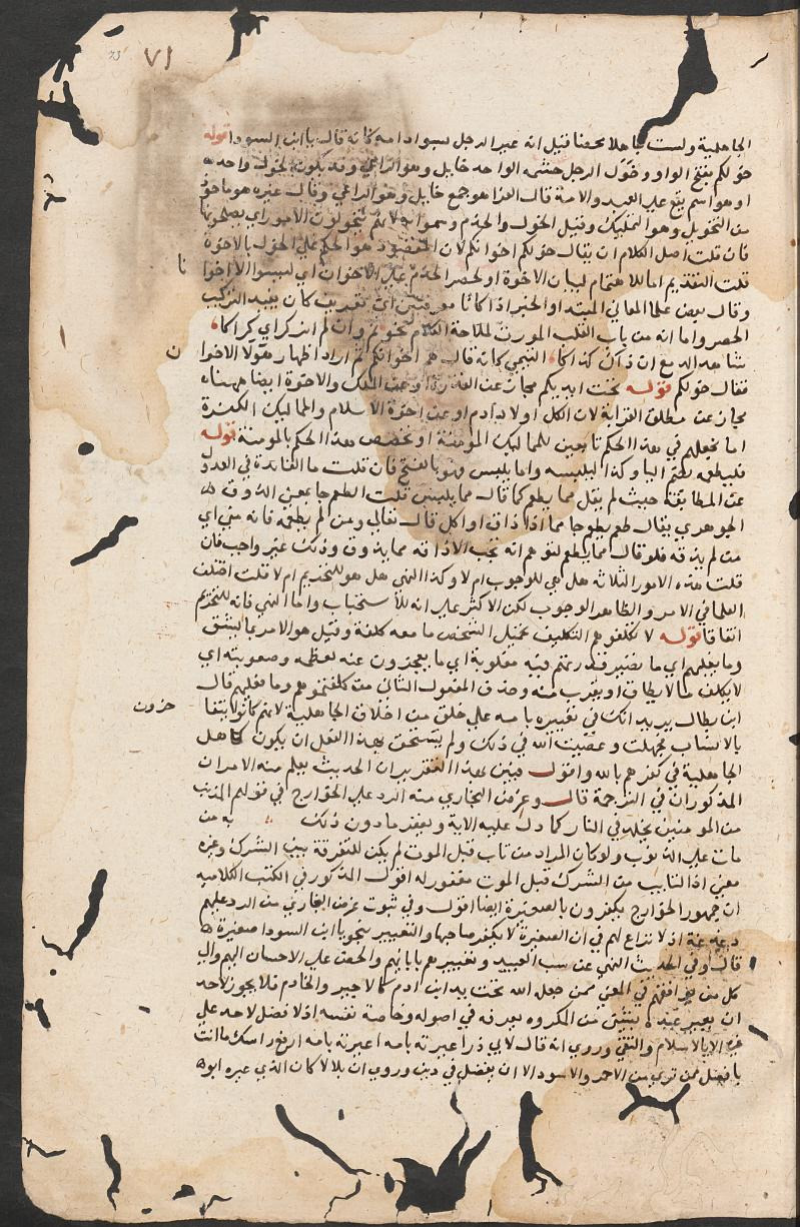 ٧١
الجاهلية ولست جاهلا محضا قيل انه عير الرجل بسواد امه كانه قال يا ابن السودا قوله
خولكم بفتح الواو وخول الرجل حشمه الواحد خايل وهو الراعي وقد يكون الخول واحدا
او هو اسم يقع علي العبد والامة قال الفرا هو جمع خايل وهو الراعي وقال غيره هو ماخوذ
من التخويل وهو التمليك وقيل الخول والخدم وسموا به لانهم يتخولون الامور اي يصلحونها
فان قلت اصل الكلام ان يقال خولكم اخوانكم لان المقصود هو الحكم علي الخول بالاخوة
قلت التقديم اما للاهتمام لبيان الاخوة او لحصر الخدم علي الاخوان اي ليسوا الا اخوا
نا
وقال بعض علما المعاني المبتدا والخبر اذا كانا معرفتين اي تعريف كان يفيد التركيب
الحصر واما انه من باب القلب المورث لملاحة الكلام نحو نم وان لم انم كراي كراكا
شاهد الدمع ان ذاك كذاكا التيمي كانه قال هم اخوانكم ثم اراد اظهار هولا الاخوا
ن
فقال خولكم قوله تحت ايديكم مجاز عن القدرة او عن الملك والاخوة ايضا ههناه
مجاز عن مطلق القرابة لان الكل اولاد ادم او عن اخوة الاسلام والمماليك الكفرة
اما نجعلهم في هذا الحكم تابعين للمماليك المومنة او نخصص هذا الحكم بالمومنة قوله
فليطعمه بضم اليا وكذا ليلبسه واما يلبس فهو بالفتح فان قلت ما الفايدة في العدول
عن المطابقة حيث لم يقل مما يطعم كما قال مما يلبس قلت الطعم جا بمعني الذوق ه
الجوهري يقال طعم يطعم طعما اذا ذاق او اكل قال تعالي ومن لم يطعمه فانه مني اي
من لم يذقه فلو قال مما يطعم لتوهم انه تجب الاذاقه مما يذوق وذلك غير واجب فان
قلت هذه الامور الثلاثه هل هي للوجوب ام لا وكذا النهي هل هو للتحريم ام لا قلت اختلف
العلما في الامر والظاهر الوجوب لكن الاكثر علي انه للاستحباب واما النهي فانه للتحريم
اتفاقا قوله لا تكلفوهم التكليف تحميل الشخص ما معه كلفة وقيل هو الامر بما يشق
وما يغلبهم اي ما تصير قدرتهم فيه مغلوبة اي ما يعجزون عنه لعظمه وصعوبته اي
لا يكلف ما لا يطاق او يقرب منه وحذف المفعول الثاني من كلفتموهم وما يغلبهم قال
ابن بطال يريد انك في تعييره بامه علي خلق من اخلاق الجاهلية لانهم كانوا يتفا
خرون
بالانساب فجهلت وعصيت الله في ذلك ولم يستحق بهذا الفعل ان يكون كاهل
الجاهلية في كفرهم بالله واقول فبين بهذا التقرير ان الحديث يعلم منه الامران
المذكوران في الترجمة قال وغرض البخاري منه الرد علي الخوارج في قولهم المذنب
من المومنين يخلد في النار كما دل عليه الاية ويغفر مادون ذلك به من
مات علي الذنوب ولو كان المراد من تاب قبل الموت لم يكن للتفرقة بين الشرك وغيره
معني اذ التايب من الشرك قبل الموت مغفور له اقول المذكور في الكتب الكلاميه
ان جمهور الخوارج يكفرون بالصغيرة ايضا اقول وفي ثبوت غرض البخاري من الرد عليهم
دغدغة اذ لا نزاع لهم في ان الصغيرة لا يكفر صاحبها والتعيير بنحو يا ابن السودا صغيرة ه
قال وفي الحديث النهي عن سب العبيد وتعييرهم بابائهم والحض علي الاحسان اليهم والي
كل من يوافقهم في المعني ممن جعل الله تحت يد ابن ادم كالاجير والخادم فلا يجوز لاحد
ان يعير عبده بشي من المكروه يعرفه في اصوله وخاصة نفسه اذ لا فضل لاحد علي
غيره الا بالاسلام والتقي وروي انه قال لابي ذر اعيرته بامه اعيرته بامه ارفع راسك ما انت
بافضل ممن تري من الاحمر والاسود الا ان يفضل في دين وروي ان بلالا كان الذي عيره ابوه